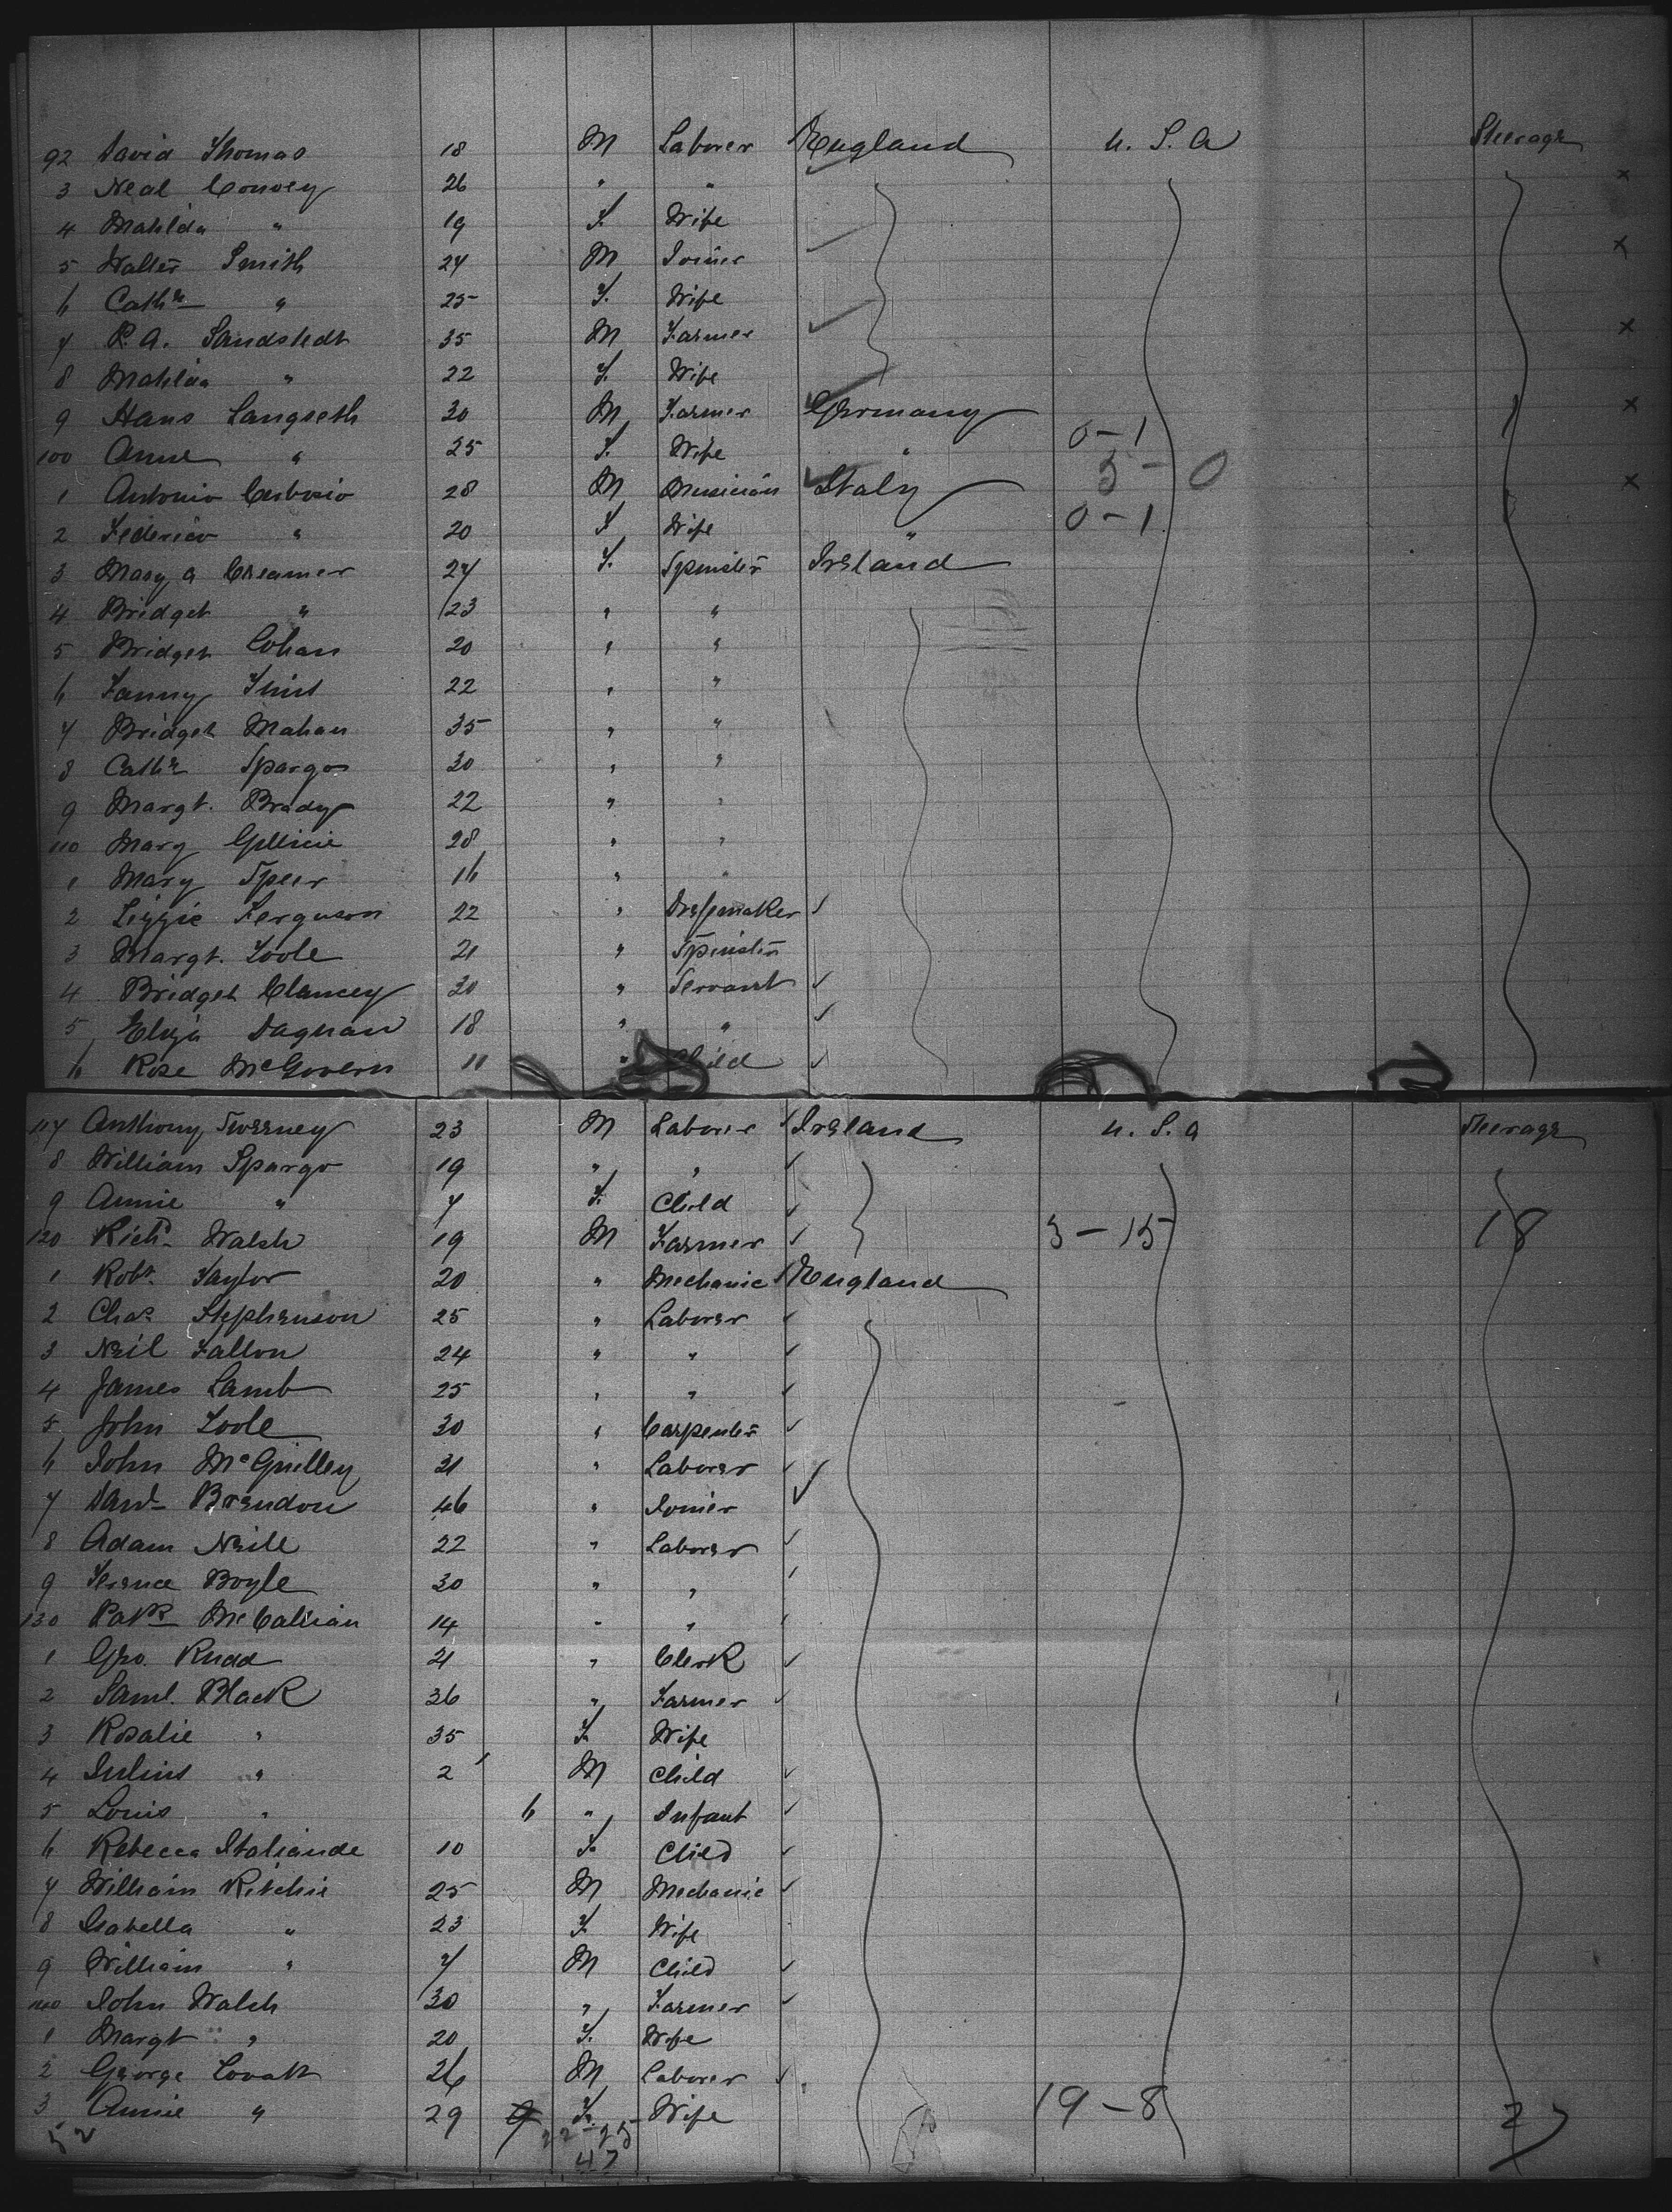 92 David Thomas 18 M Laborer England U. S. A Steerage
3 Neal Convey 26 " " x
4 Matilda " 19 F. Wife
5 Walter Smith 24 M Joiner x
6 Cathe " 25 F. Wife
7 P. A. Sandstedt 35 M Farmer x
8 Matilda " 22 F. Wife
9 Hans Langseth 30 M Farmer Germany x
100 Anne " 25 F. Wife " 0-1
1 Antonio 28 M Musician Italy 3-0 x
2 Federico " 20 F Wife " 0-1
3 Mary A Creamer 27 F. Spinster Ireland
4 Bridget " 23 " "
5 Bridget Cohan 20 " "
6 Fanny Flint 22 " "
7 Bridget Mahan 35 " "
8 Cathe Spargo 30 " "
9 Margt. Brady 22 " "
110 Mary 28 " "
1 Mary Speer 16 " "
2 Lizzie Ferguson 22 " Dressmaker
3 Margt. Toole 21 " Spinster
4 Bridget Clancey 30 " Servant
5 Eliza Dagnan 18 " "
6 Rose McGovern 11 " Child
117 Anthony Sweeney 23 M Laborer Ireland U. S. A Steerage
8 William Spargo 19 " "
9 Annie " 7 F. Child
120 Richd Walsh 19 M Farmer 3-15 18
1 Robt. Taylor 20 " Mechanic England
2 Chas Stephenson 25 " Laborer
3 Neil Fallon 24 " "
4 James Lamb 25 " "
5 John Toole 30 " Carpenter
6 John McGuilley 31 " Laborer
7 Danl Brendon 46 " Joiner
8 Adam Neill 22 " Laborer
9 Terence Boyle 30 " "
130 Patk 14 " "
1 Geo. Rudd 21 " Clerk
2 Saml. Black 36 " Farmer
3 Rosalie " 35 F. Wife
4 Julius " 2 M Child
5 Louis " 6 " Infant
6 Rebecca Italiande 10 F. Child
7 William Ritchie 25 M Mechanic
8 Isabella " 23 F Wife
9 William " 7 M Child
140 John Walsh 30 " Farmer
1 Margt " 20 F. Wife
2 George Lovatt 26 M Laborer
3 Annie " 29 F. Wife 19-8 27
52 22-25
47